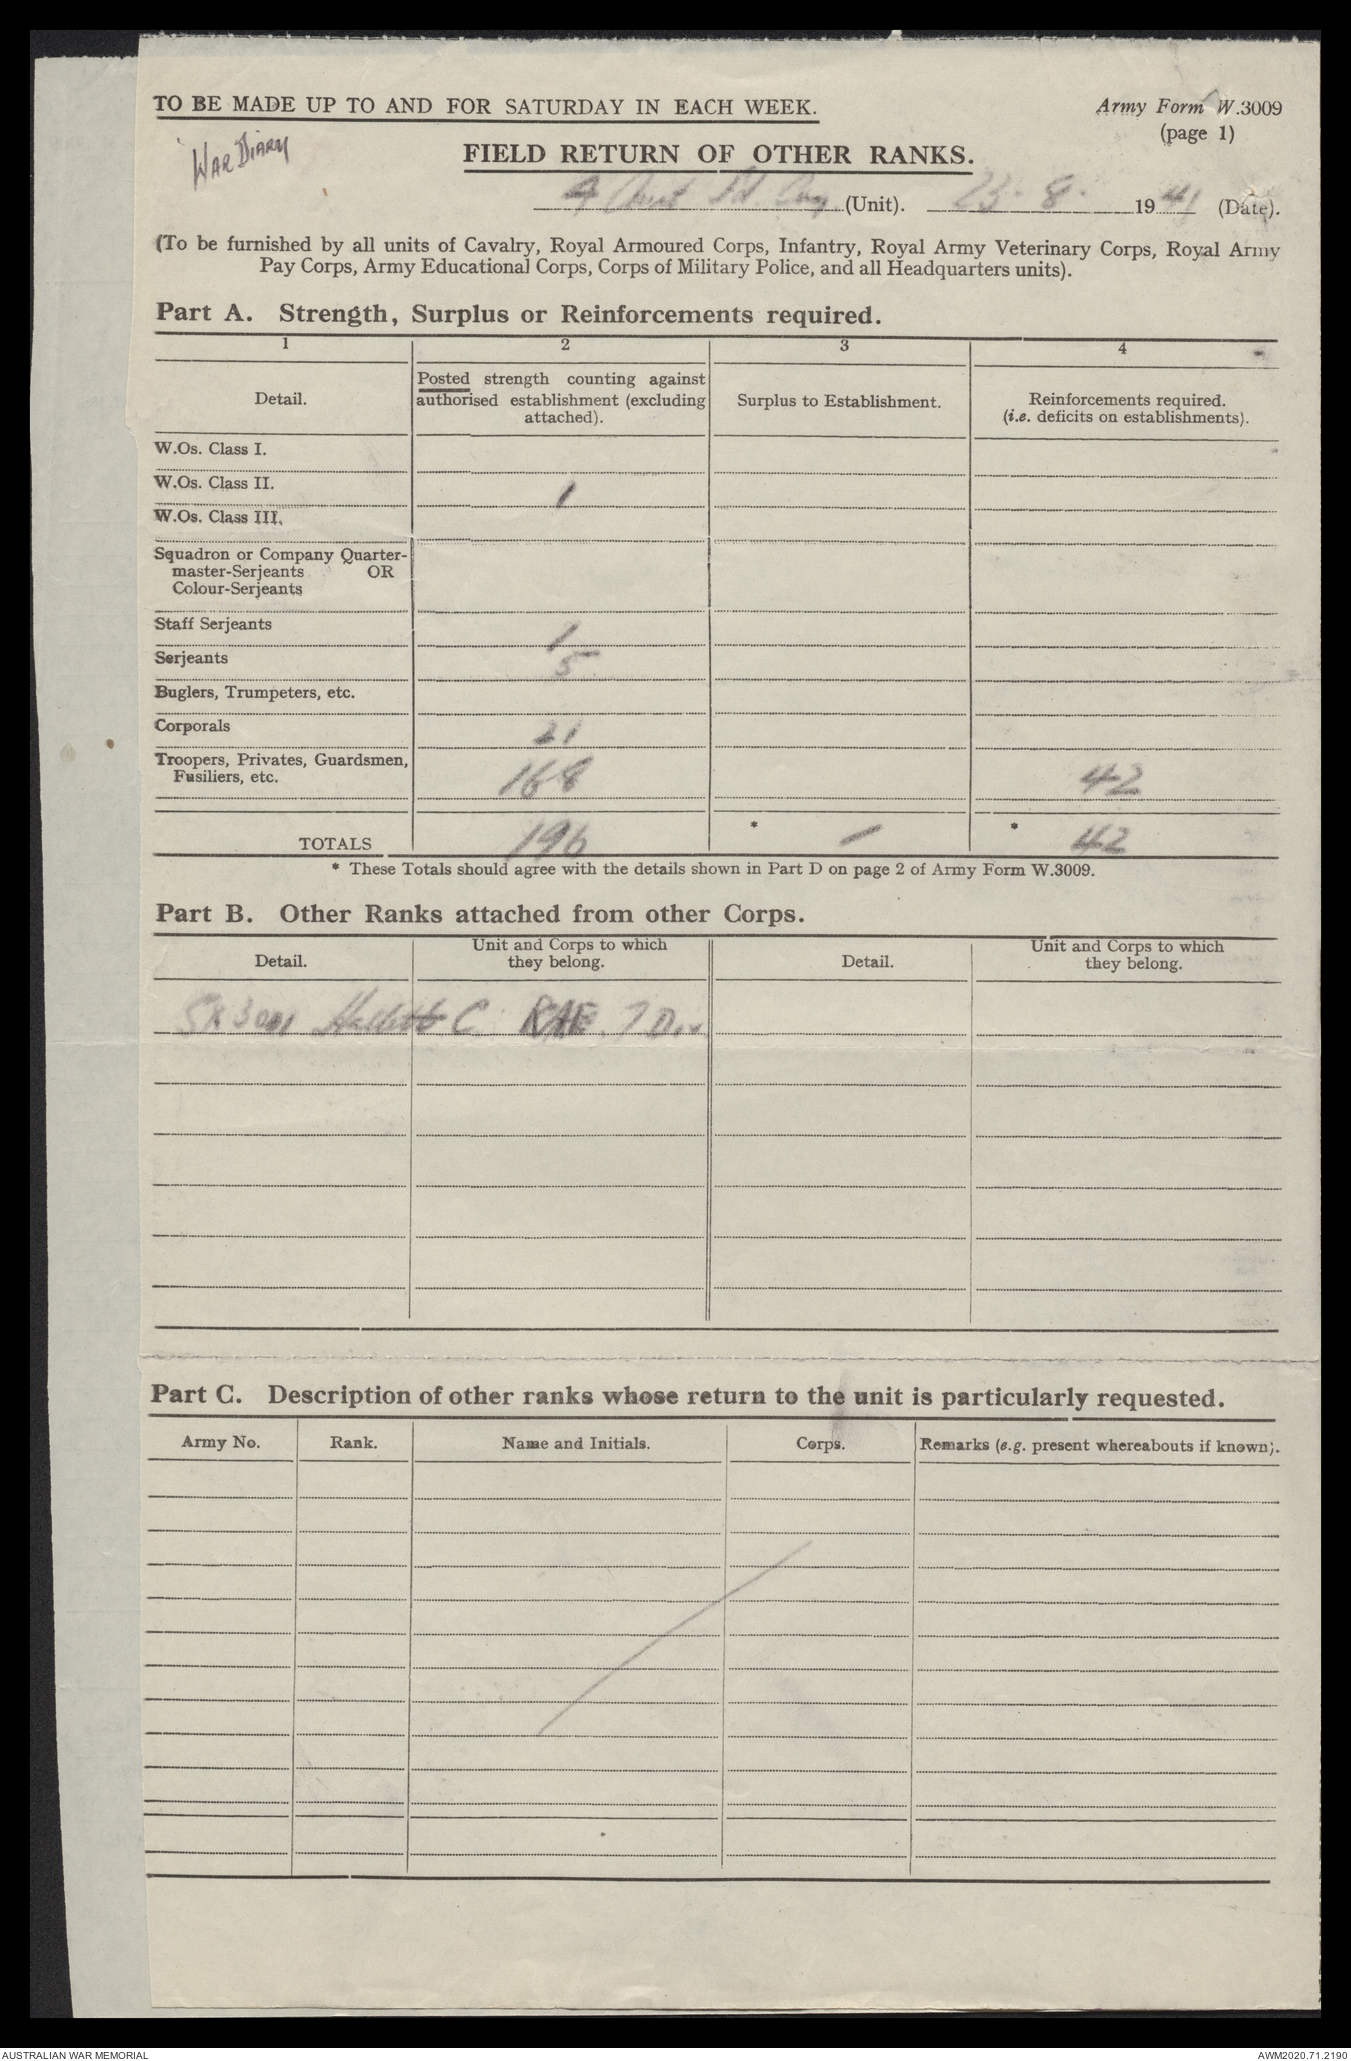 TO BE MADE UP TO AND FOR SATURDAY IN EACH WEEK.
Army Form W.3009
(page 1)
WAR DIARY
FIELD RETURN OF OTHER RANKS.
4 Aust Fd Coy (Unit). 23.8. 1941 (Date).
(To be furnished by all units of Cavalry, Royal Armoured Corps, Infantry, Royal Army Veterinary Corps, Royal Army
Pay Corps, Army Educational Corps, Corps of Military Police, and all Headquarters units).
Part A. Strength, Surplus or Reinforcements required.
1 2 3 4
Detail.
Posted strength counting against
authorised establishment (excluding
attached).
Surplus to Establishment.
Reinforcements required.
(i.e. deficits on establishments).
W.Os. Class I.
W.Os. Class II. 1
W.Os. Class III.
Squadron or Company Quarter-
master-Serjeants OR
Colour-Serjeants
Staff Serjeants 1
Serjeants 5
Buglers, Trumpeters, etc.
Corporals 21
Troopers, Privates, Guardsmen,
Fusiliers, etc. 168 42
TOTALS 196 * / * 42
* These Totals should agree with the details shown in Part D on page 2 of Army Form W.3009.
Part B. Other Ranks attached from other Corps.
Detail.
Unit and Corps to which
they belong.
Detail.
Unit and Corps to which
they belong.
C RAE. 7 Div
Part C. Description of other ranks whose return to the unit is particularly requested.
Army No. Rank. Name and Initials. Corps. Remarks (e.g. present whereabouts if known).
AUSTRALIAN WAR MEMORIAL
AWM2020.71.2190